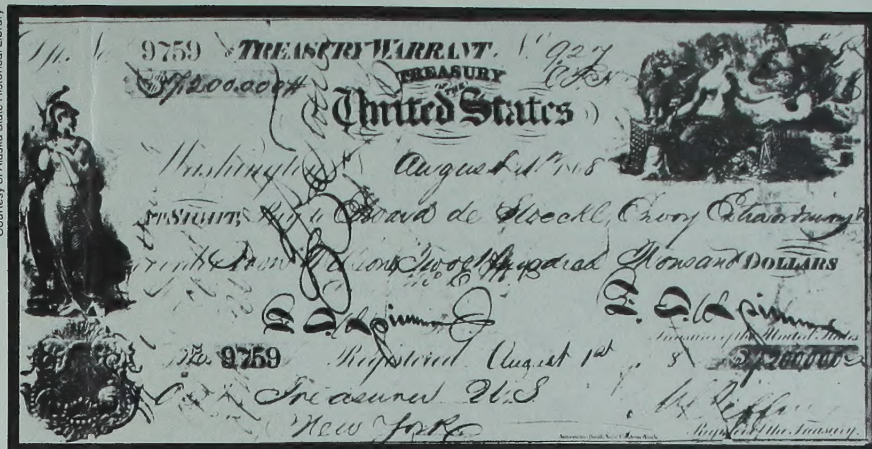 Courtesy of Alaska State Historical Library
9759 TREASURY WARRANT. No. 927
$7,200.000
TREASURY
OF THE
United States
Washington August 1st
AT SIGHT, Pay to Edward de Stoeckl, Envoy Extraordinary &c
Seven Million Two Hundred Thousand DOLLARS
F. E. Spinner F. E. Spinner
Treasurer of the United States
No. 9759 Registered August 1st $7,200,000
Treasurer U.S
New York
Register of the Treasury.